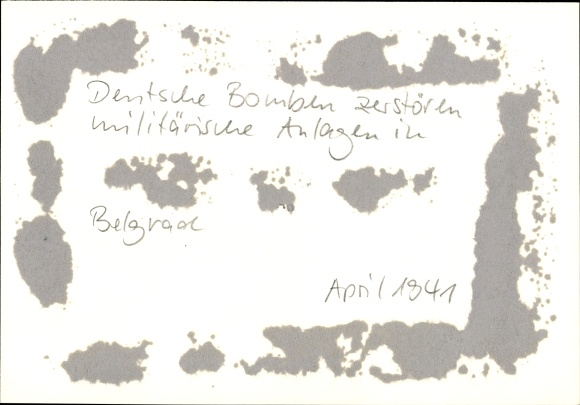 Deutsche Bomben zerstören
militärische Anlagen in
Belgrad
April 1941